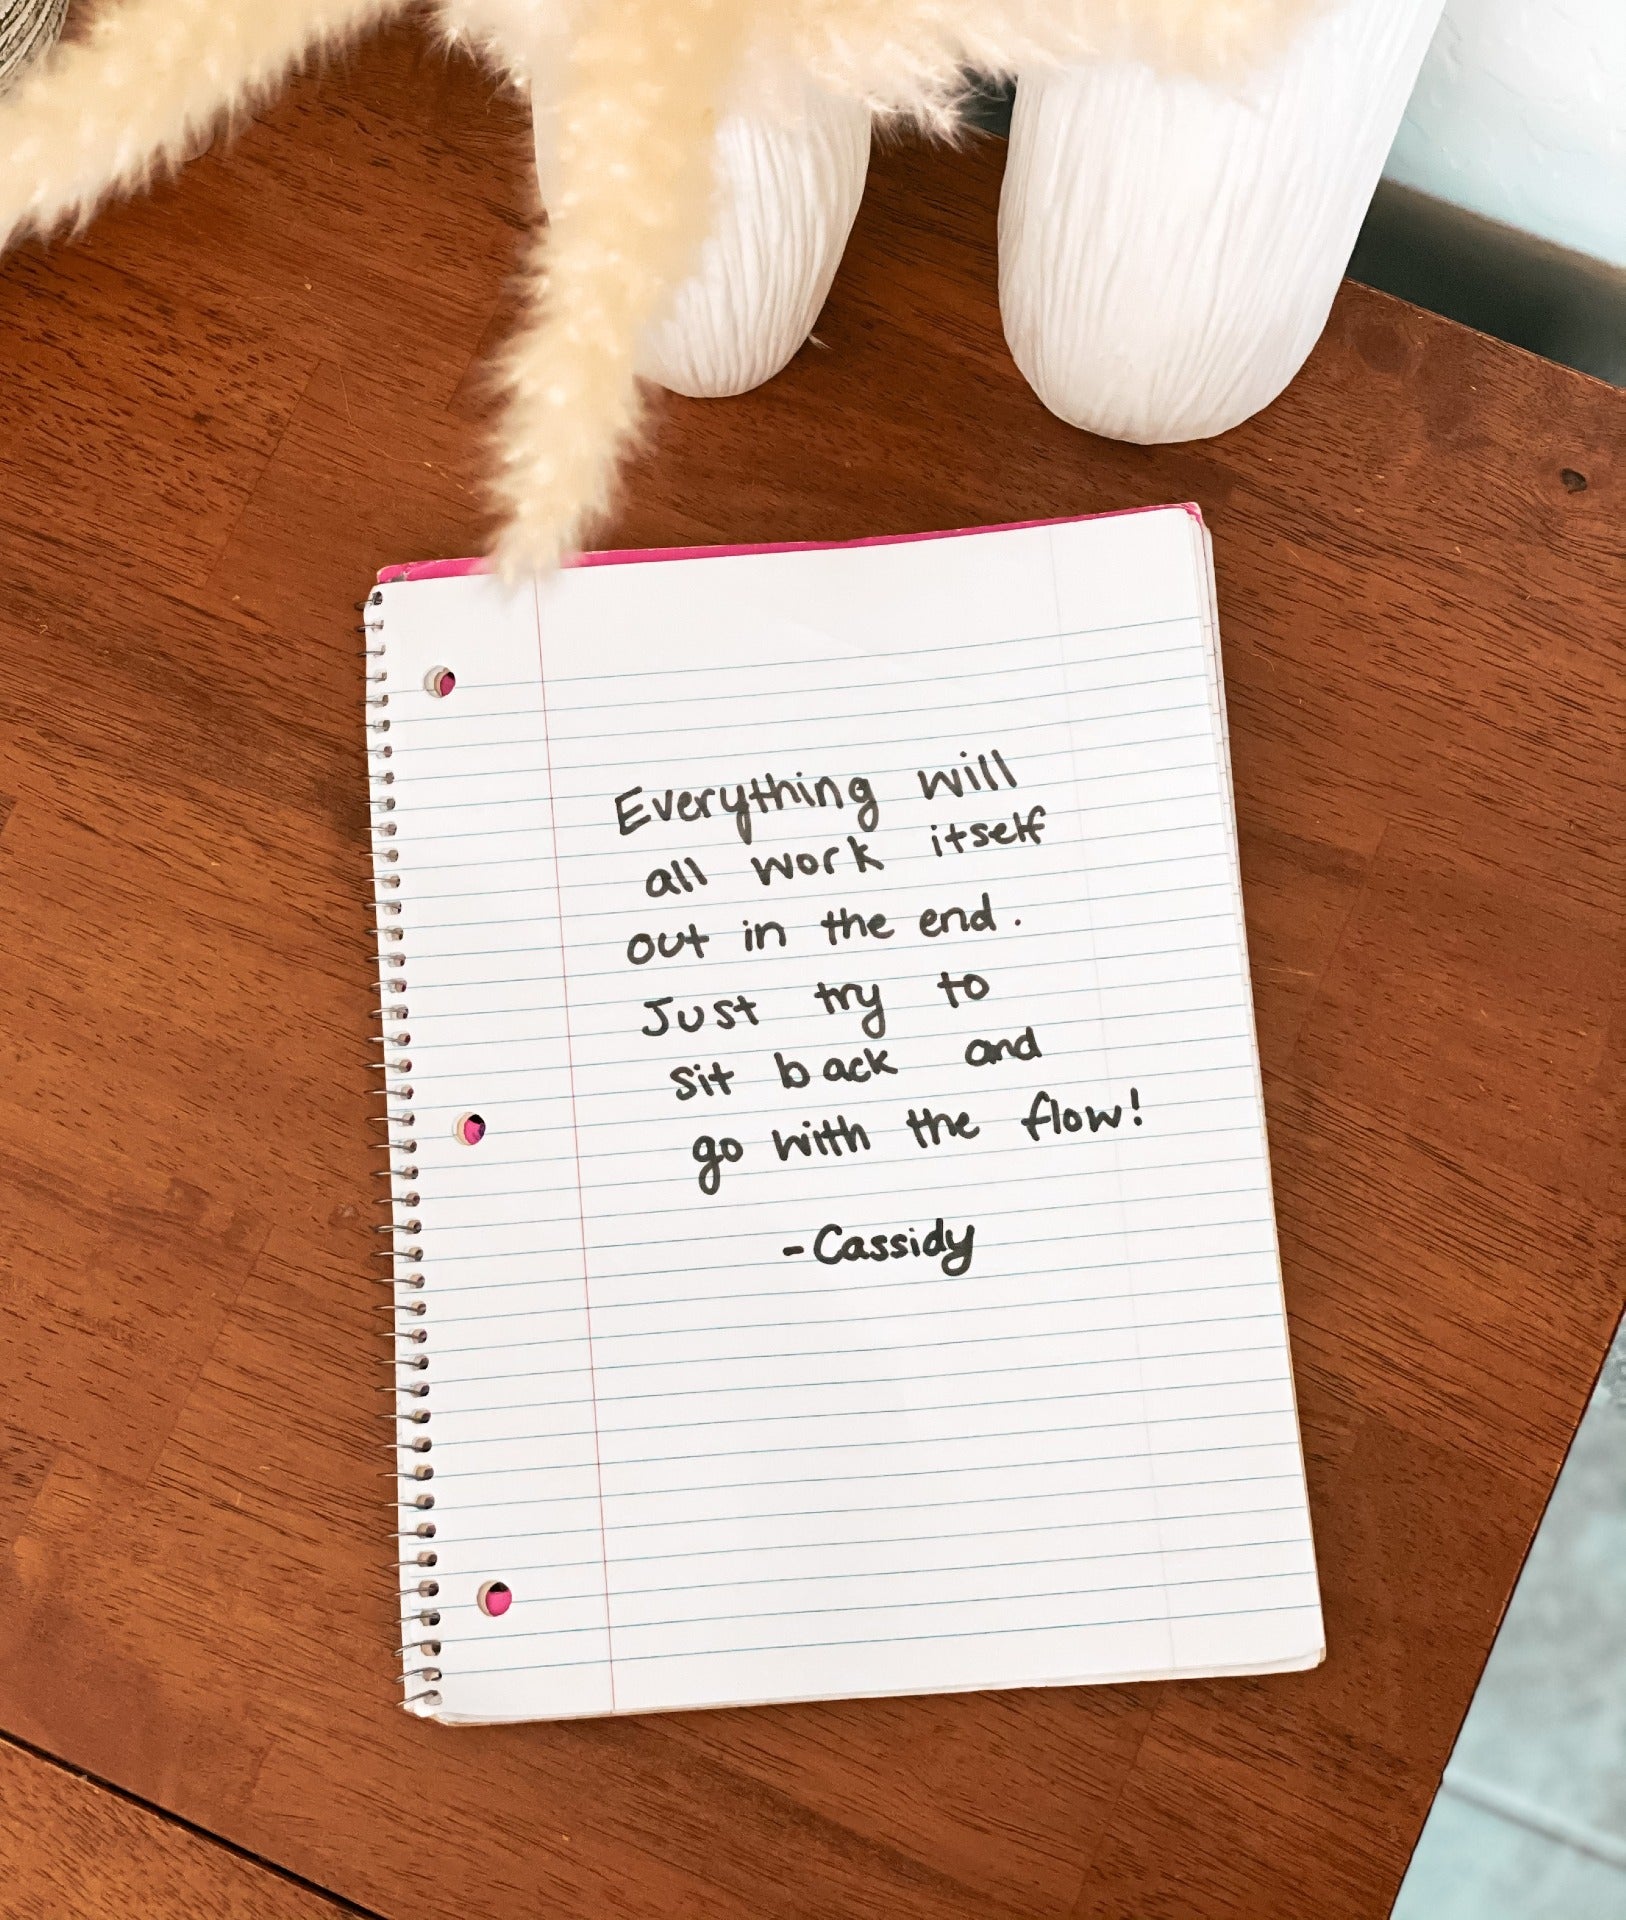 Everything will
all work itself
out in the end.
Just try to
sit back and
go with the flow!
-Cassidy